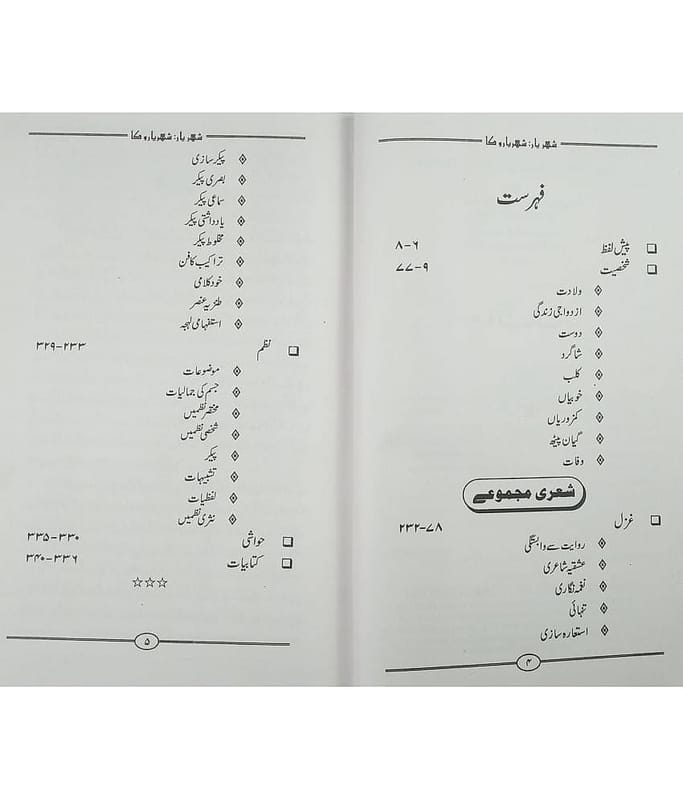 شہریار: شہریارو کا
فہرست
❑ پیش لفظ ۶-۸
❑ شخصیت ۹-۷۷
ولادت
ازدواجی زندگی
دوست
شاگرد
کلب
خوبیاں
کمزوریاں
گیان پیٹھ
وفات
شعری مجموعے
❑ غزل ۷۸-۲۳۲
روایت سے وابستگی
عشقیہ شاعری
نغمہ نگاری
تنہائی
استعارہ سازی
۴
شہریار: شہریارو کا
پیکر سازی
بصری پیکر
سماعی پیکر
یادداشتی پیکر
مخلوط پیکر
تراکیب کا فن
خود کلامی
طنزیہ عنصر
استفہامی لہجہ
❑ نظم ۲۳۳-۳۲۹
موضوعات
جسم کی جمالیات
مختصر نظمیں
شخصی نظمیں
پیکر
تشبیہات
لفظیات
نثری نظمیں
❑ حواشی ۳۳۰-۳۳۵
❑ کتابیات ۳۳۶-۳۴۰
☆☆☆
۵